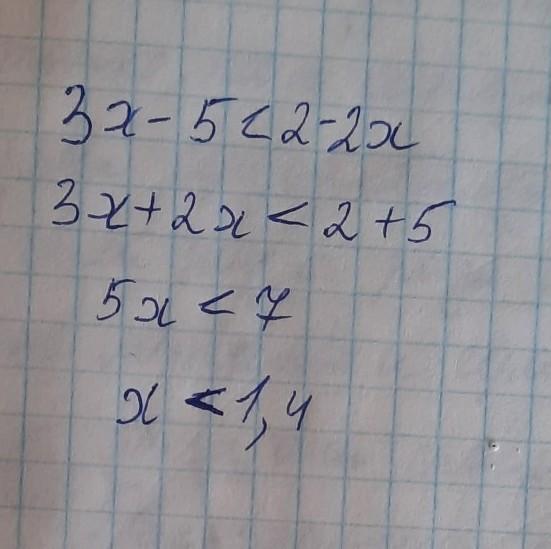 3x - 5 < 2 - 2x
3x + 2x < 2 + 5
5x < 7
x < 1,4